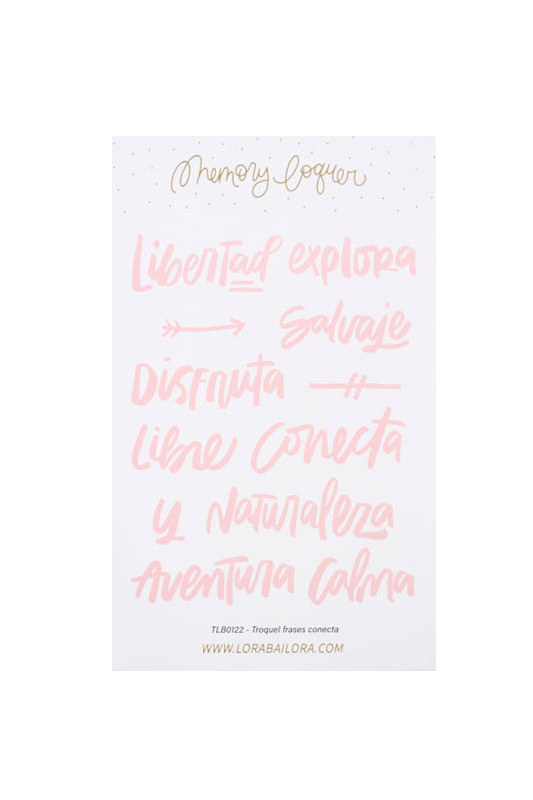 Memory loquer
Libertad explora
Salvaje
Disfruta
Libre Conecta
y Naturaleza
Aventura Calma
TLB0122 - Troquel frases conecta
WWW.LORABAILORA.COM